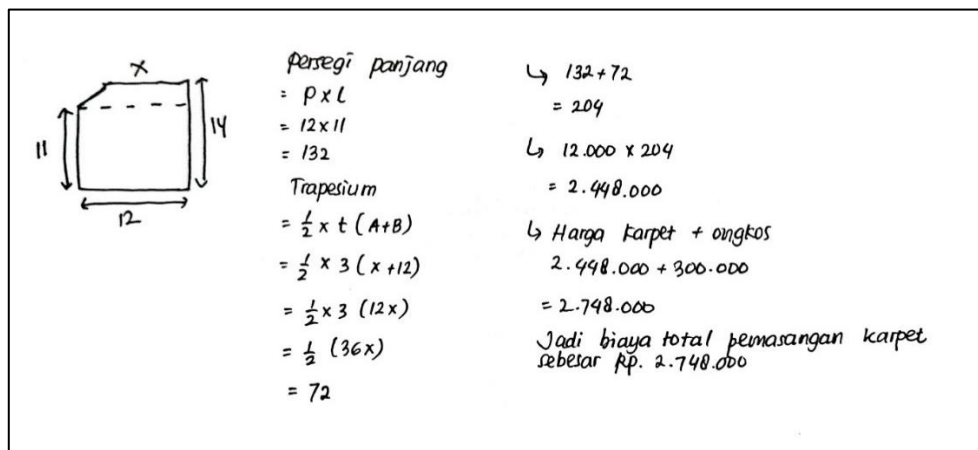 x
11
14
12
Persegi panjang
= P x l
= 12 x 11
= 132
Trapesium
= 1/2 x t (A+B)
= 1/2 x 3 (x+12)
= 1/2 x 3 (12x)
= 1/2 (36x)
= 72
↳ 132+72
= 204
↳ 12.000 x 204
= 2.448.000
↳ Harga karpet + ongkos
2.448.000 + 300.000
= 2.748.000
Jadi biaya total pemasangan karpet
sebesar Rp. 2.748.000